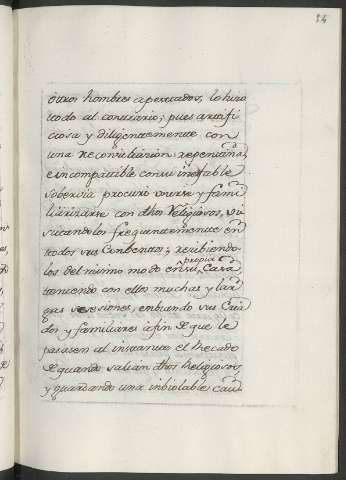 54
ôtros hombres aperreados, lo hizo
todo al contrario; pues artifi
ciosa y diligentemente con
una reconciliación repentina,
e incompatible con su inefable
sobervia procuró unirse y fami
liarizarse con dhos Religiosos, vi
sitandolos frequentemente en
todos sus Conbentos; recibiendo
los del mismo modo en su propia Casa
teniendo con ellos muchas y lar
gas sesiones, embiando sus Cria
dos y familiares à fin de que le
pasasen al instante el Recado
de quando salian dhos Religiosos,
y guardando una inbiolable cau